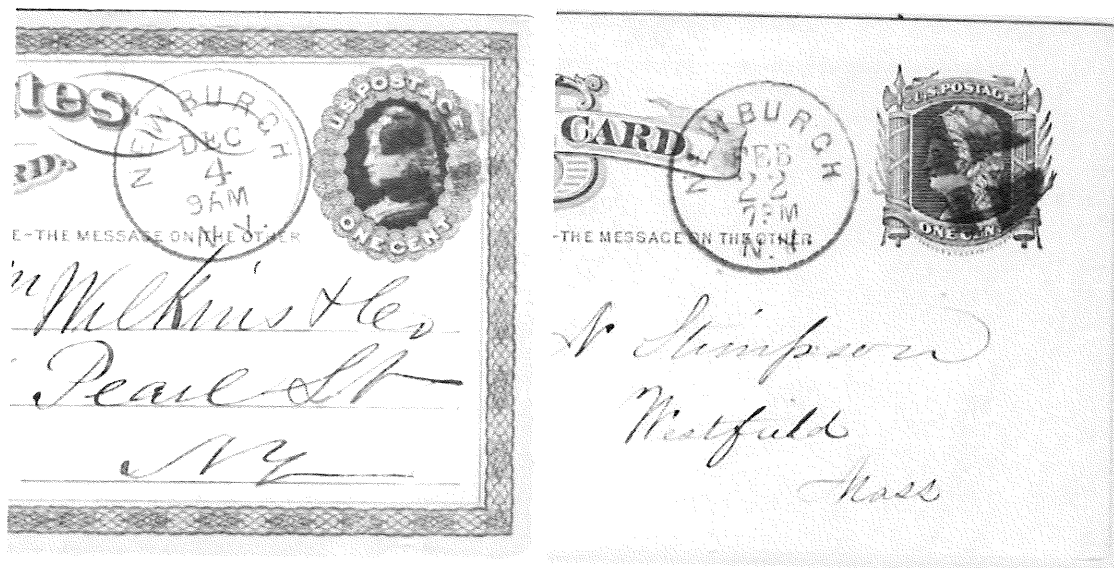 tes
RD.
NEWBURGH
DEC
4
9AM
N.Y.
U.S. POSTAGE
ONE CENT
E-THE MESSAGE ON THE OTHER
Wilkins & Co
Pearl St
NY
CARD
NEWBURGH
FEB
22
7PM
N.Y.
U.S. POSTAGE
ONE CENT
-THE MESSAGE ON THE OTHER
N Stimpson
Westfield
Mass